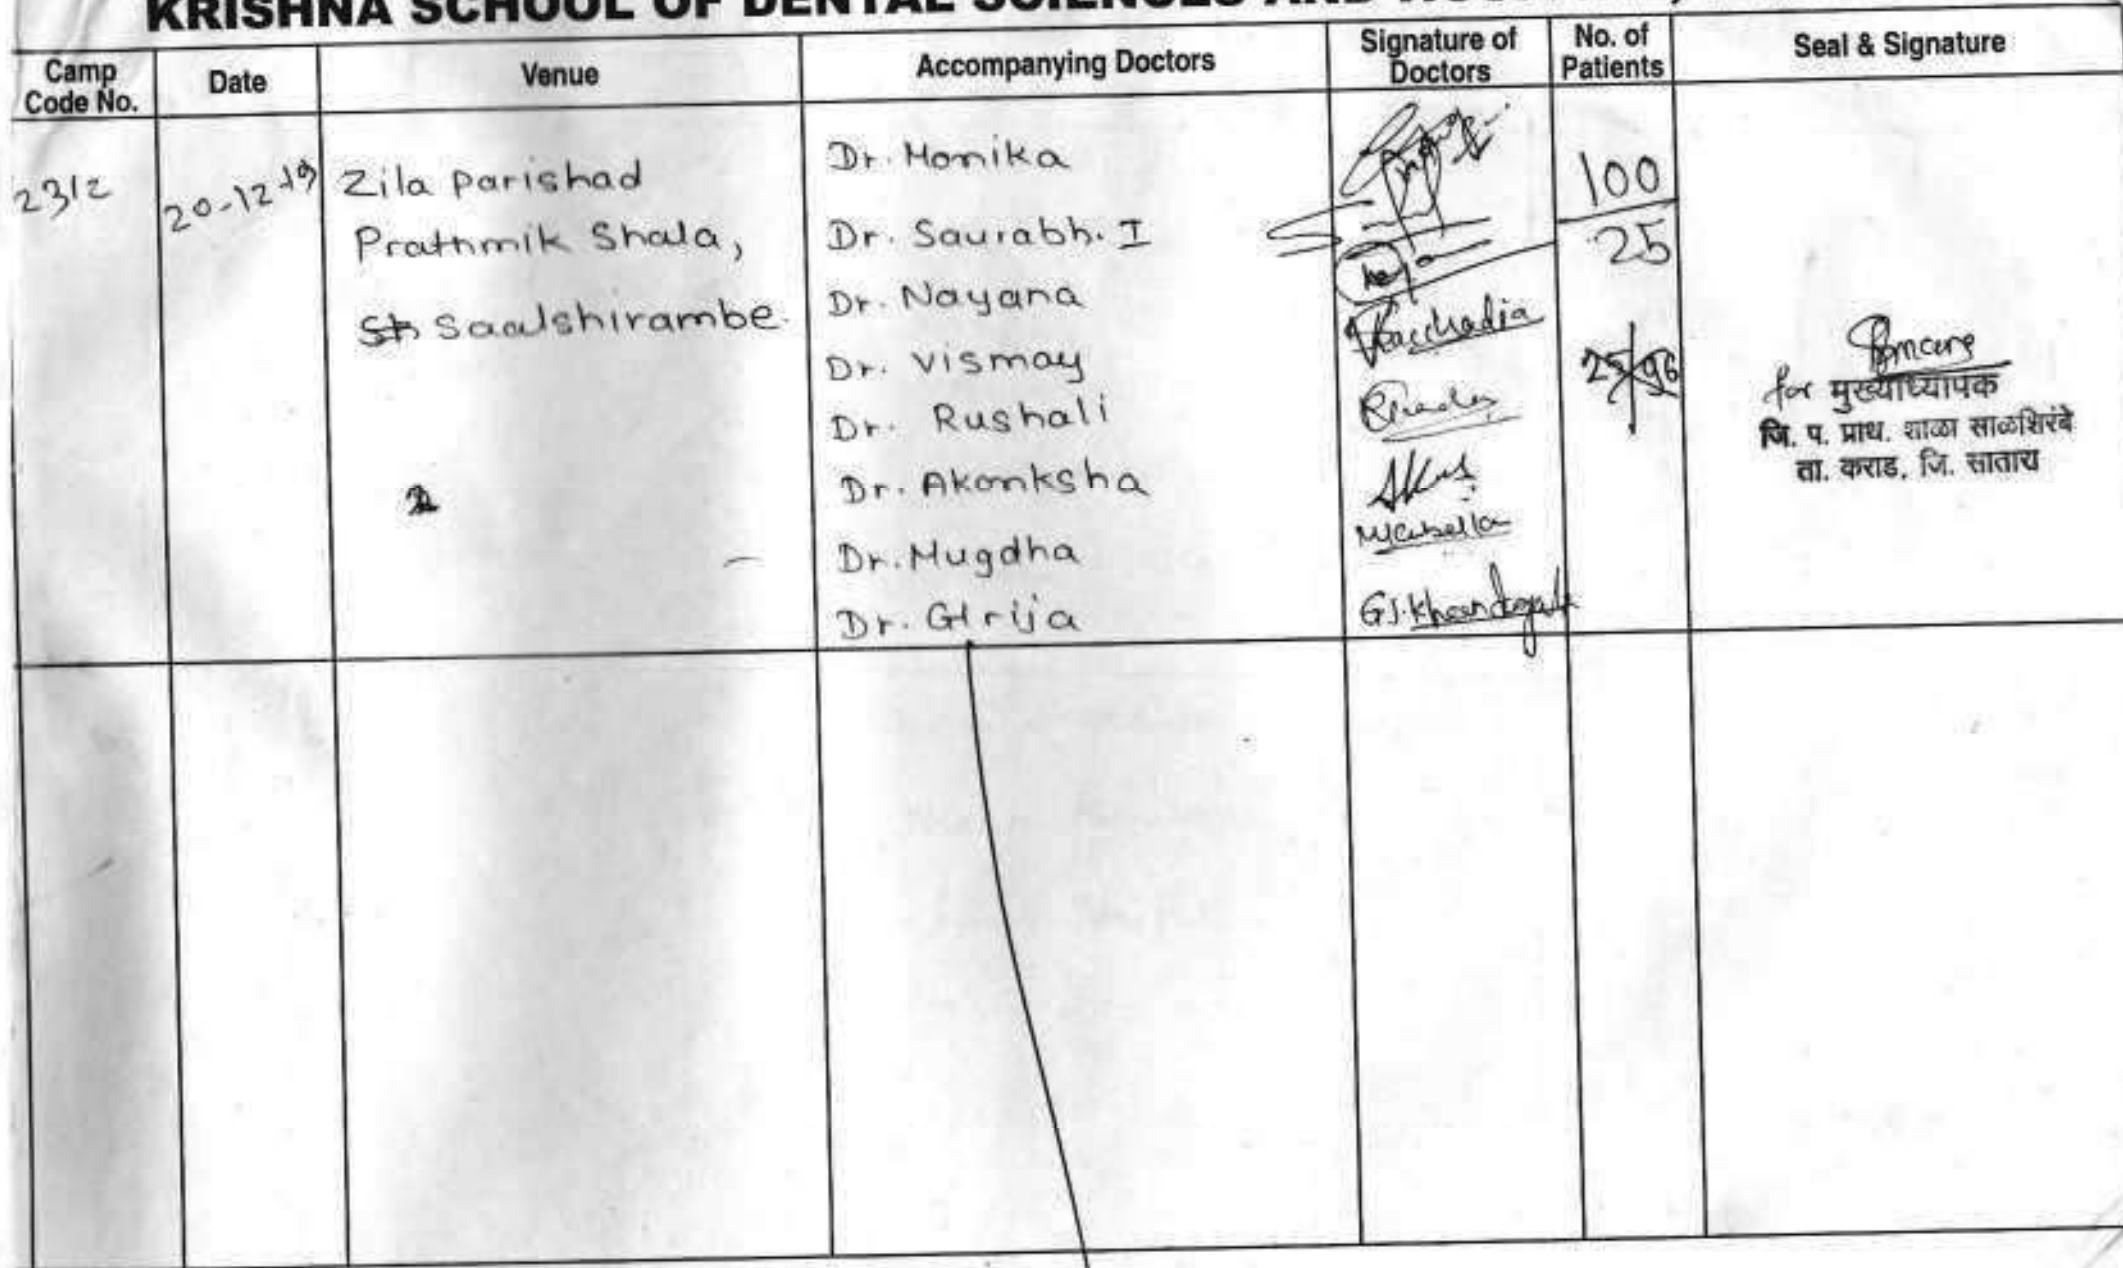 KRISHNA SCHOOL OF DENTAL SCIENCES AND
Camp Code No.
Date
Venue
Accompanying Doctors
Signature of Doctors
No. of Patients
Seal & Signature
2312
20-12-19
Zila Parishad
Prathmik Shala,
Sh Saalshirambe.
Dr. Monika
Dr. Saurabh. I
Dr. Nayana
Dr. Vismay
Dr. Rushali
Dr. Akanksha
Dr. Mugdha
Dr. Girija
G.J. Khandagale
100
25
25/96
for मुख्याध्यापक
जि. प. प्राथ. शाळा साळशिरंबे
ता. कराड, जि. सातारा